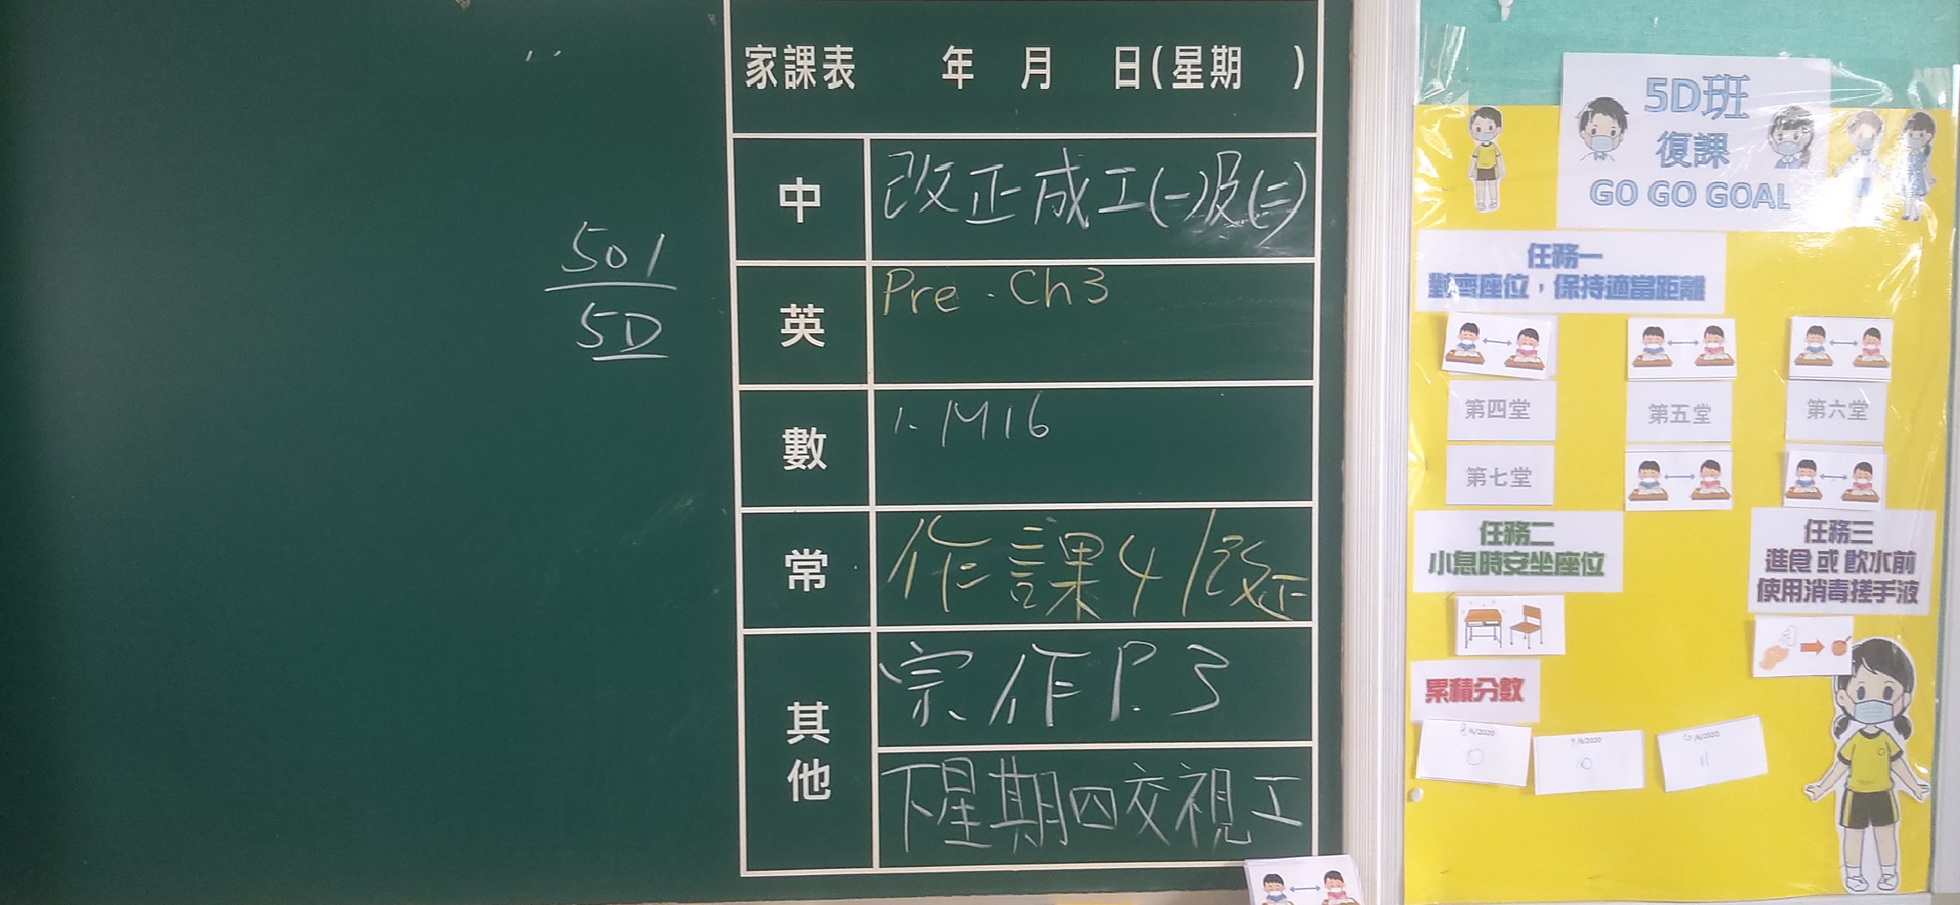 501
5D
家課表 年 月 日(星期 )
中 改正成工(一)及(二)
英 Pre. Ch3
數 1. M16
常 作課4/改正
其他 宗作P.3
下星期四交視工
5D班
復課
GO GO GOAL
任務一
對齊座位，保持適當距離
第四堂 第五堂 第六堂
第七堂
任務二
小息時安坐座位
任務三
進食 或 飲水前
使用消毒搓手液
累積分數
8/6/2020
9/6/2020
10/6/2020
11